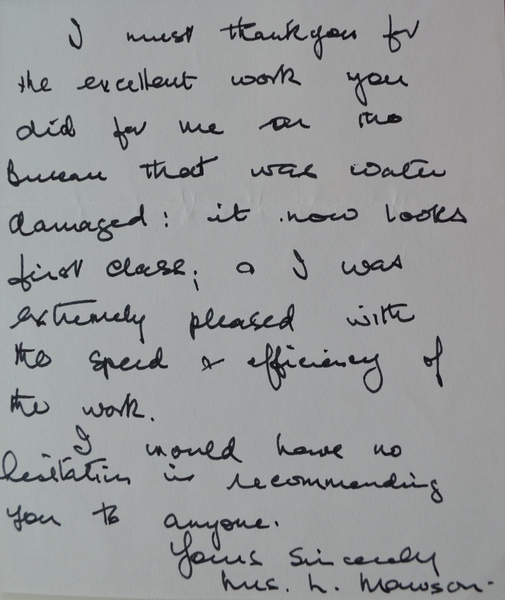 I must thankyou for
the excellent work you
did for me on the
Bureau that was water
damaged: it now looks
first class; & I was
extremely pleased with
the speed & efficiency of
the work.
I would have no
hesitation in recommending
you to anyone.
Yours Sincerely
Mrs. L. Mawson.